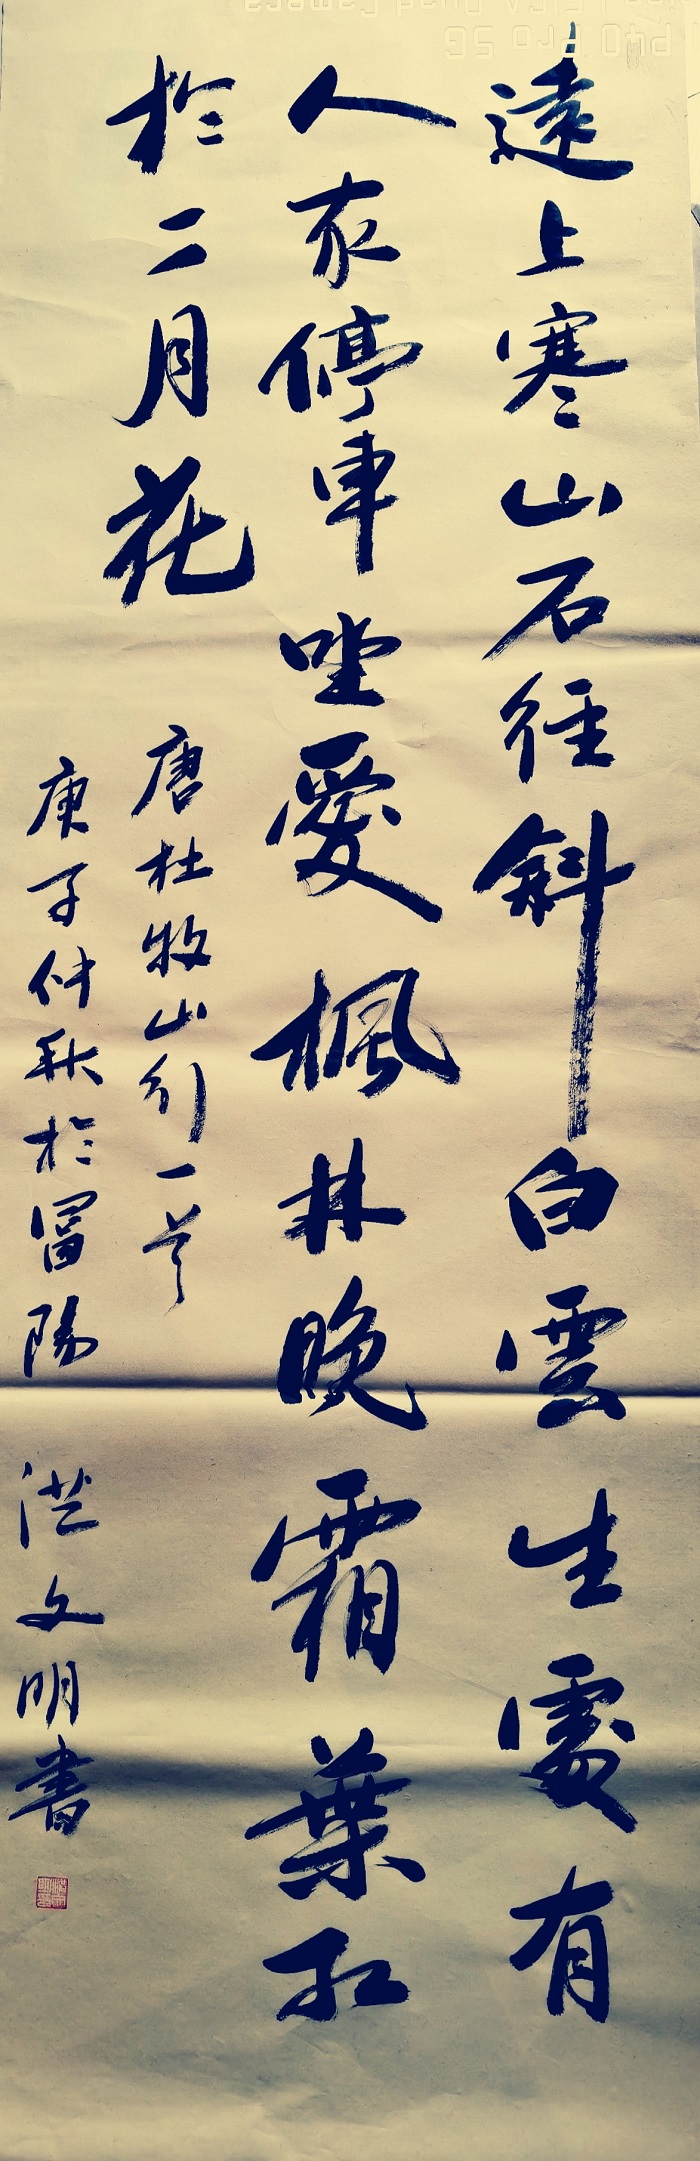 遠上寒山石徑斜白雲生處有
人家停車坐愛楓林晚霜葉紅
於二月花
唐杜牧山行一首
庚子仲秋於冨陽
文明書